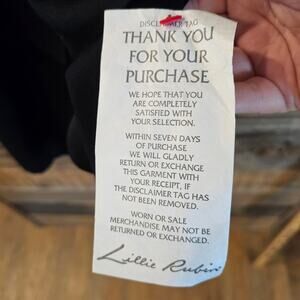 DISCLAIMER TAG
THANK YOU
FOR YOUR
PURCHASE
WE HOPE THAT YOU
ARE COMPLETELY
SATISFIED WITH
YOUR SELECTION.
WITHIN SEVEN DAYS
OF PURCHASE
WE WILL GLADLY
RETURN OR EXCHANGE
THIS GARMENT WITH
YOUR RECEIPT, IF
THE DISCLAIMER TAG HAS
NOT BEEN REMOVED.
WORN OR SALE
MERCHANDISE MAY NOT BE
RETURNED OR EXCHANGED.
Lillie Rubin